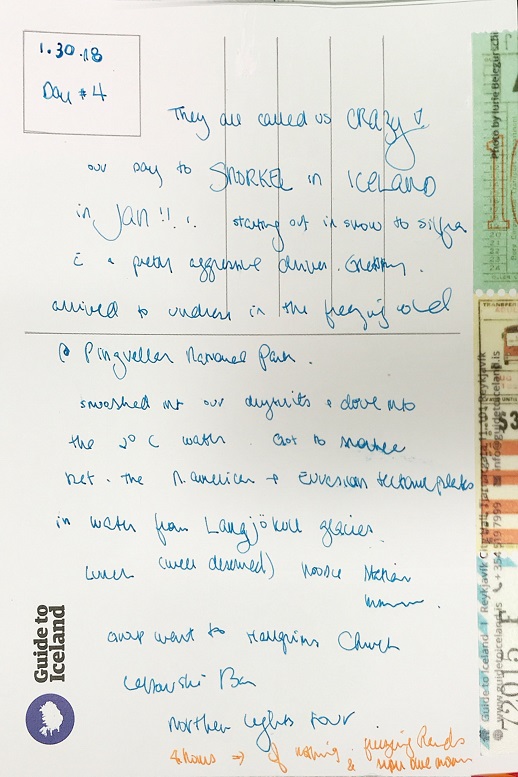 1.30.18
Day #4
They all called us CRAZY
our day to SNORKEL in ICELAND
in Jan!!! starting out in snow to Silfra
c̄ a pretty aggressive driver.
arrived to undress in the freezing cold
@ Pingveller National Park.
smooshed into our drysuits & dove into
the 2°C water. Got to
bet. the N. american + Eurasian tectonic plates
in water from Langjökull glacier.
Lunch (well deserved) noodle station
mmm.
group went to Hallgrims Church
Lebowski Bar
northern lights tour
4 hours → of nothing. freezing hands
& one moon
Guide to
Iceland
Photo by Iurie Belegurschi
Guide to Iceland | Reykjavik City Hall, Tjarnargata 11, 101 Reykjavik
www.guidetoiceland.is +354 519 7999 info@guidetoiceland.is
TRANSFER
$3
72015 F